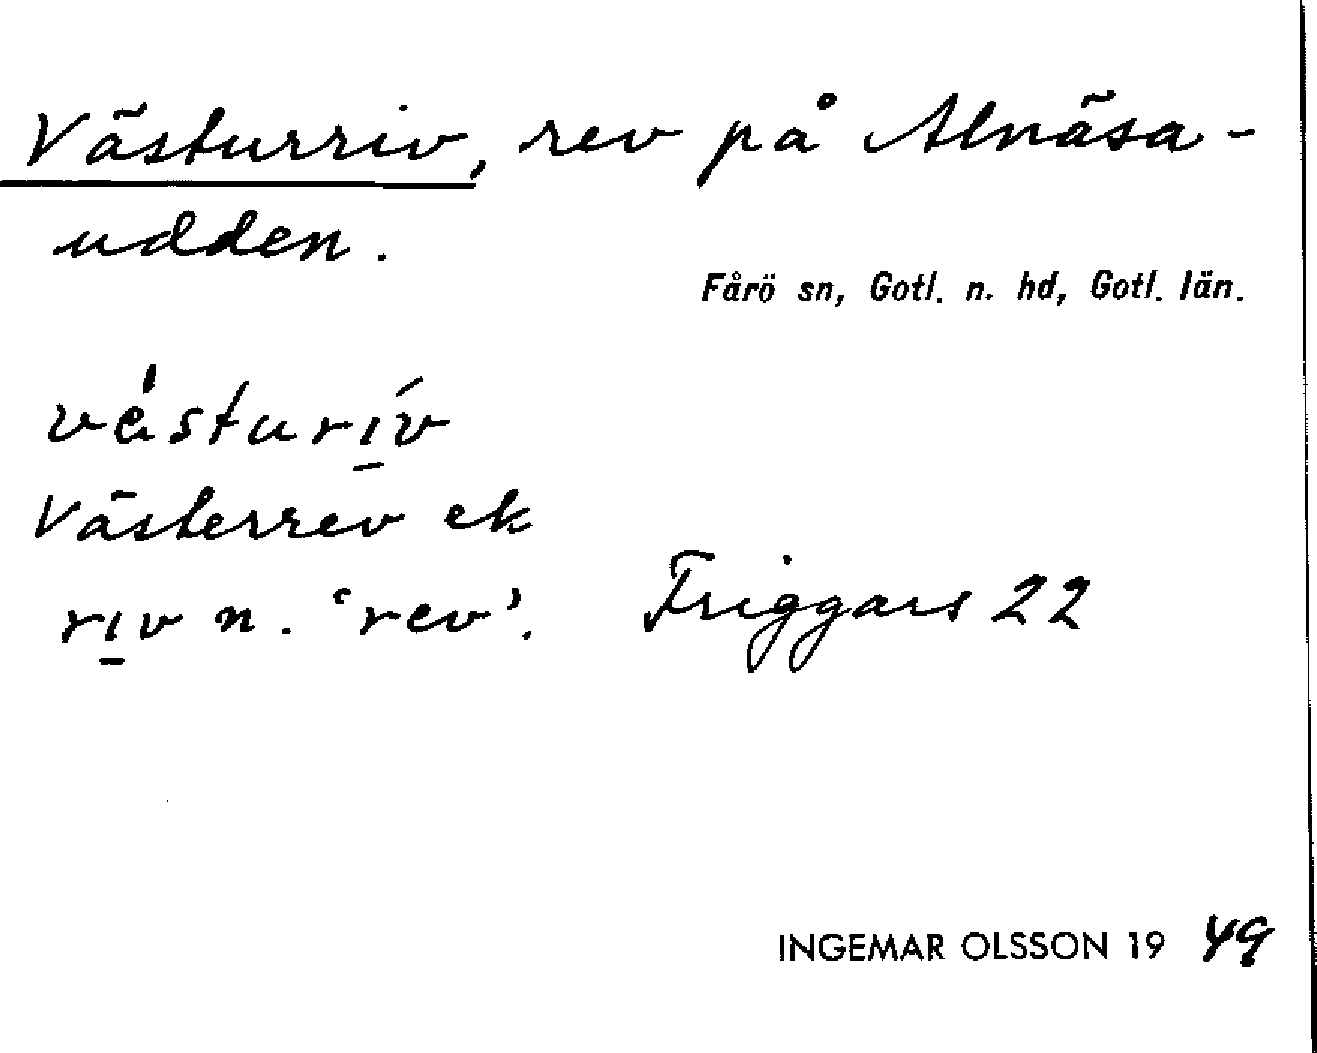 Västurriv, rev på Alnäsa-
udden.
Fårö sn, Gotl. n. hd, Gotl. län.
västurı̱́v
Västerrev ek
rı̱v n. ‘rev’.
Friggars 22
INGEMAR OLSSON 19 49